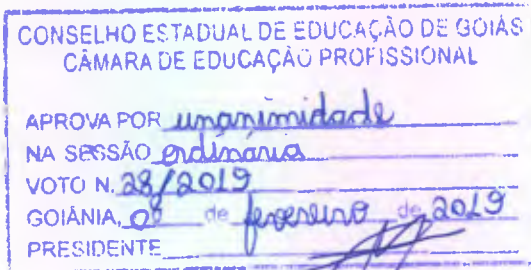 CONSELHO ESTADUAL DE EDUCAÇÃO DE GOIÁS
CÂMARA DE EDUCAÇÃO PROFISSIONAL
APROVA POR unanimidade
NA SESSÃO ordinária
VOTO N. 28/2019
GOIÂNIA, de fevereiro de 2019
PRESIDENTE